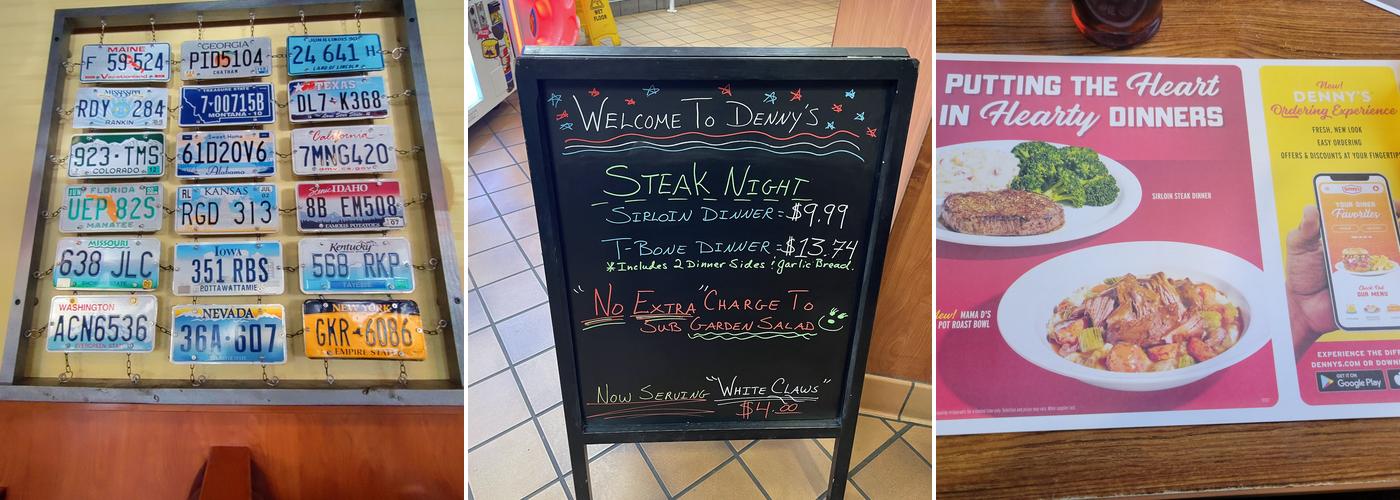 MAINE
F 59524
Vacationland
GEORGIA
PID5104
CHATHAM
24 641 H
LAND OF LINCOLN
MISSISSIPPI
RDY 284
RANKIN
TREASURE STATE
7-00715B
MONTANA - 10
TEXAS
DL7 K368
923·TMS
COLORADO
Sweet Home
61D20V6
Alabama
California
7MNG420
FLORIDA
UEP 82S
MANATEE
RL KANSAS JUL
RGD 313
Scenic IDAHO
8B EM508
FAMOUS POTATOES
MISSOURI
638 JLC
IOWA
351 RBS
POTTAWATTAMIE
Kentucky
568 RKP
WASHINGTON
ACN6536
EVERGREEN STATE
NEVADA
36A·607
NEW YORK
GKR 6086
EMPIRE STATE
WET FLOOR
WELCOME TO DENNY'S
STEAK NIGHT
SIRLOIN DINNER = $9.99
T-BONE DINNER = $13.74
*Includes 2 Dinner Sides & Garlic Bread.
"NO EXTRA" CHARGE TO
SUB GARDEN SALAD
NOW SERVING "WHITE CLAWS"
$4.00
PUTTING THE Heart
IN Hearty DINNERS
SIRLOIN STEAK DINNER
New! MAMA D'S
POT ROAST BOWL
New!
DENNY'S
Ordering Experience
FRESH, NEW LOOK
EASY ORDERING
OFFERS & DISCOUNTS AT YOUR FINGERTIP
Denny's
YOUR DINER
Favorites
Check Out
OUR MENU
EXPERIENCE THE DIFF
DENNYS.COM OR DOWN
GET IT ON
Google Play